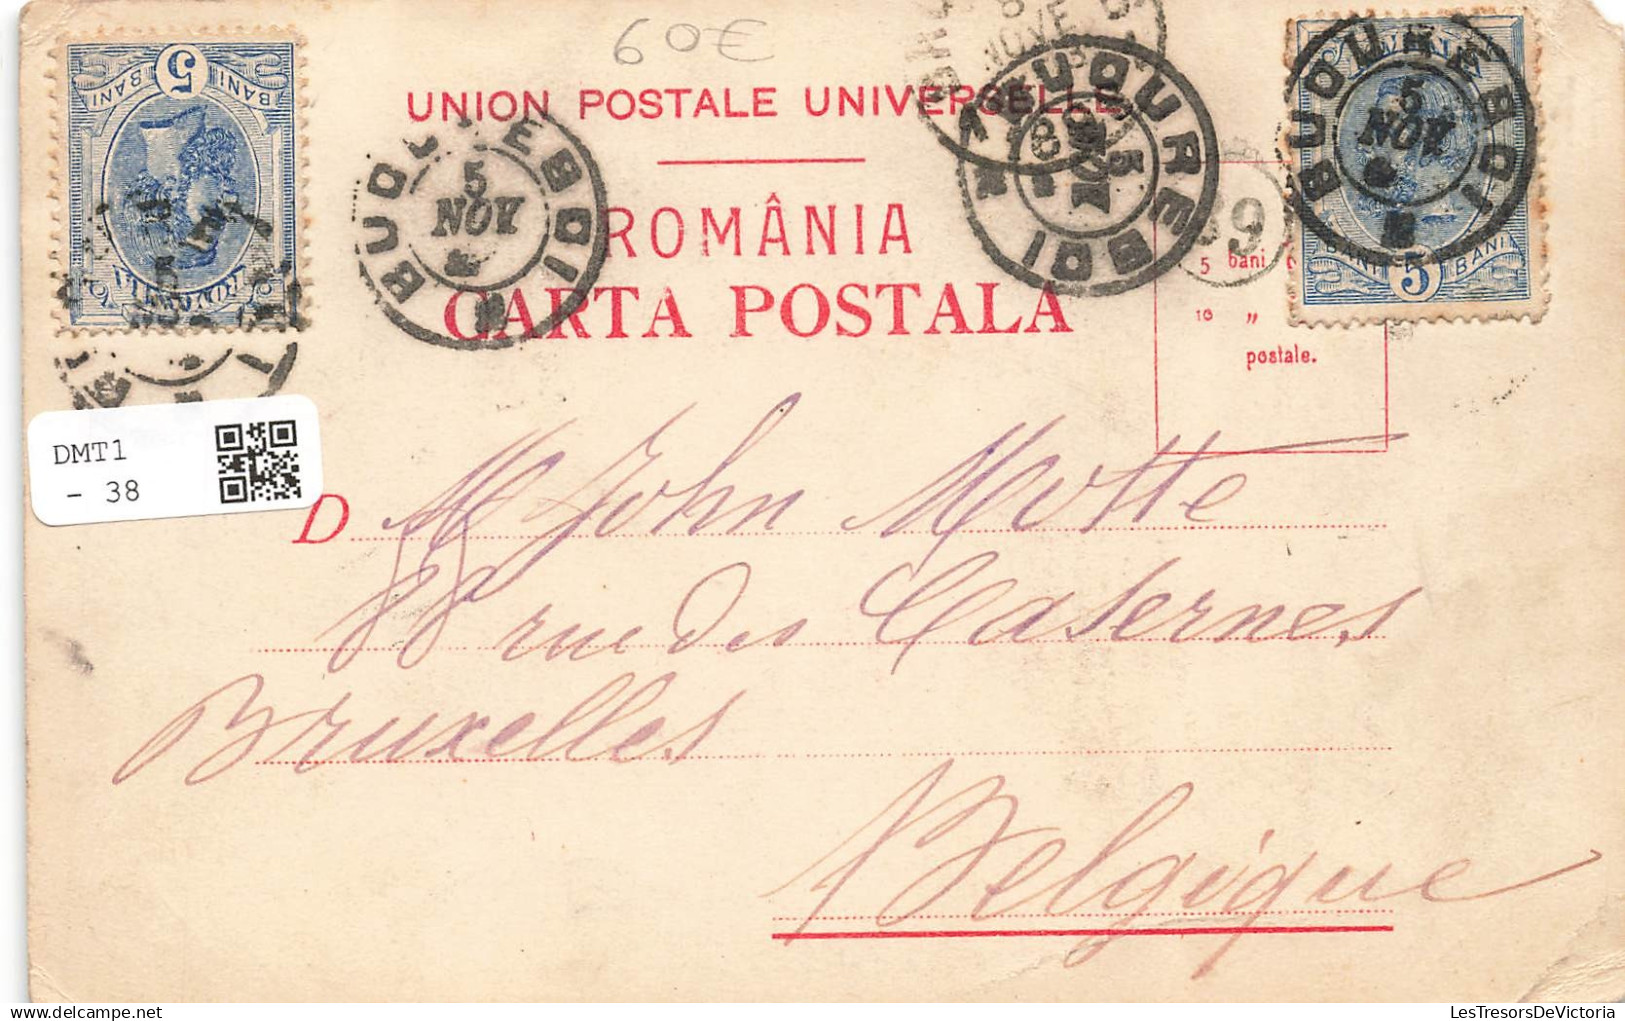 60€
UNION POSTALE UNIVERSELLE
ROMÂNIA
CARTA POSTALA
5 BANI BANI
BUCURESCI
5 NOV
5 bani
10 "
postale.
39
BANI 5 BANI
DMT1
- 38
D M John Motte
88 rue des Casernes
Bruxelles
Belgique
LesTresorsDeVictoria